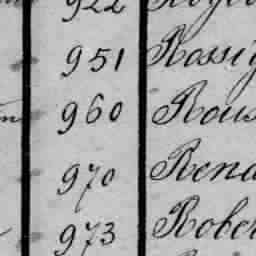 922
951 Rossig
960 Rous
970 Rena
973 Rober